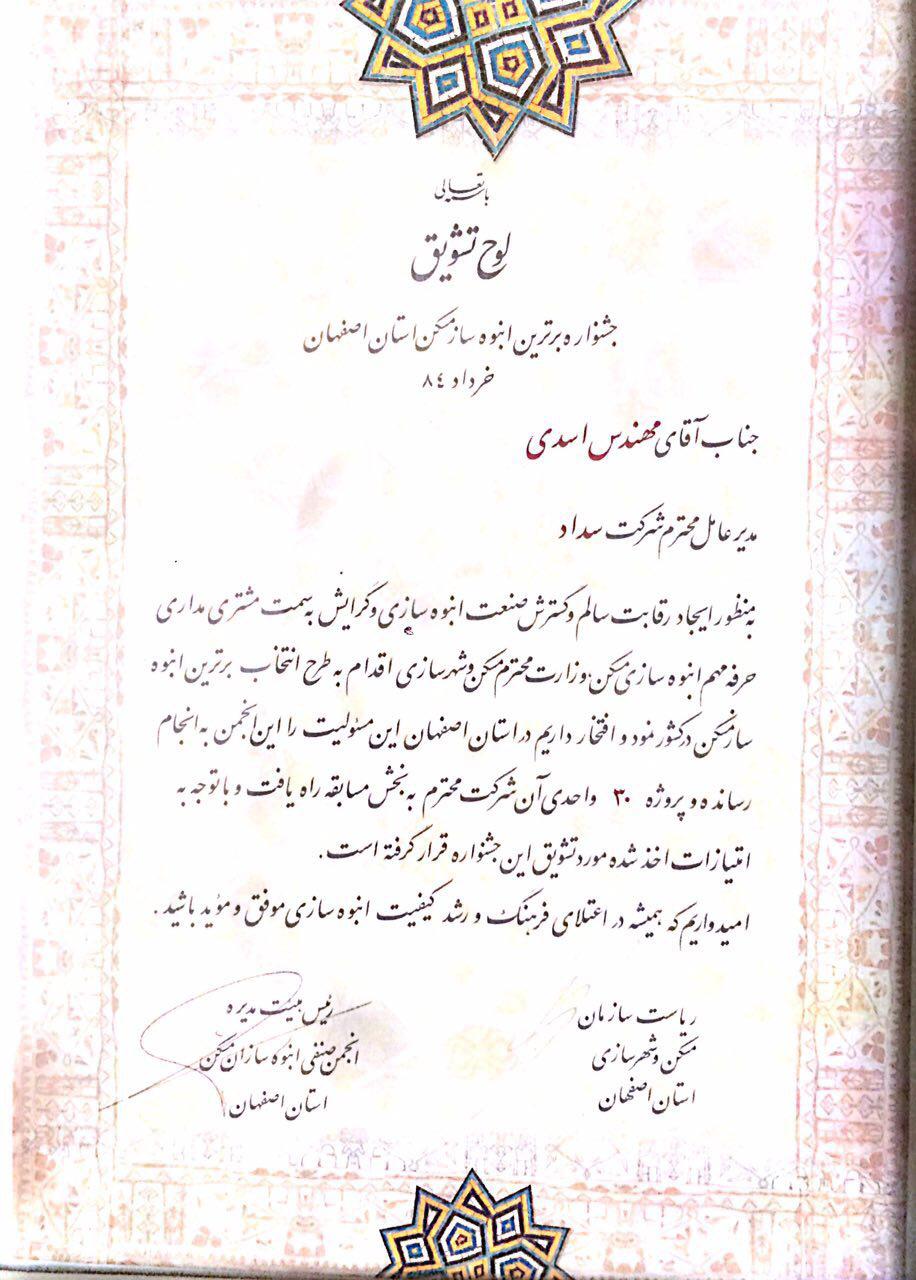 باسمه تعالی
لوح تشویق
جشنواره برترین انبوه ساز مسکن استان اصفهان
خرداد ۸٤
جناب آقای مهندس اسدی
مدیر عامل محترم شرکت سداد
به منظور ایجاد رقابت سالم و گسترش صنعت انبوه سازی و گرایش به سمت مشتری مداری
حرفه مهم انبوه سازی مسکن وزارت محترم مسکن و شهرسازی اقدام به طرح انتخاب برترین انبوه
ساز مسکن در کشور نمود و افتخار داریم در استان اصفهان این مسئولیت را این انجمن به انجام
رسانده و پروژه ۳۰ واحدی آن شرکت محترم به بخش مسابقه راه یافت و با توجه به
امتیازات اخذ شده مورد تشویق این جشنواره قرار گرفته است.
امیدواریم که همیشه در اعتلای فرهنگ و رشد کیفیت انبوه سازی موفق و مؤید باشید.
ریاست سازمان
مسکن و شهرسازی
استان اصفهان
رئیس هیئت مدیره
انجمن صنفی انبوه سازان مسکن
استان اصفهان